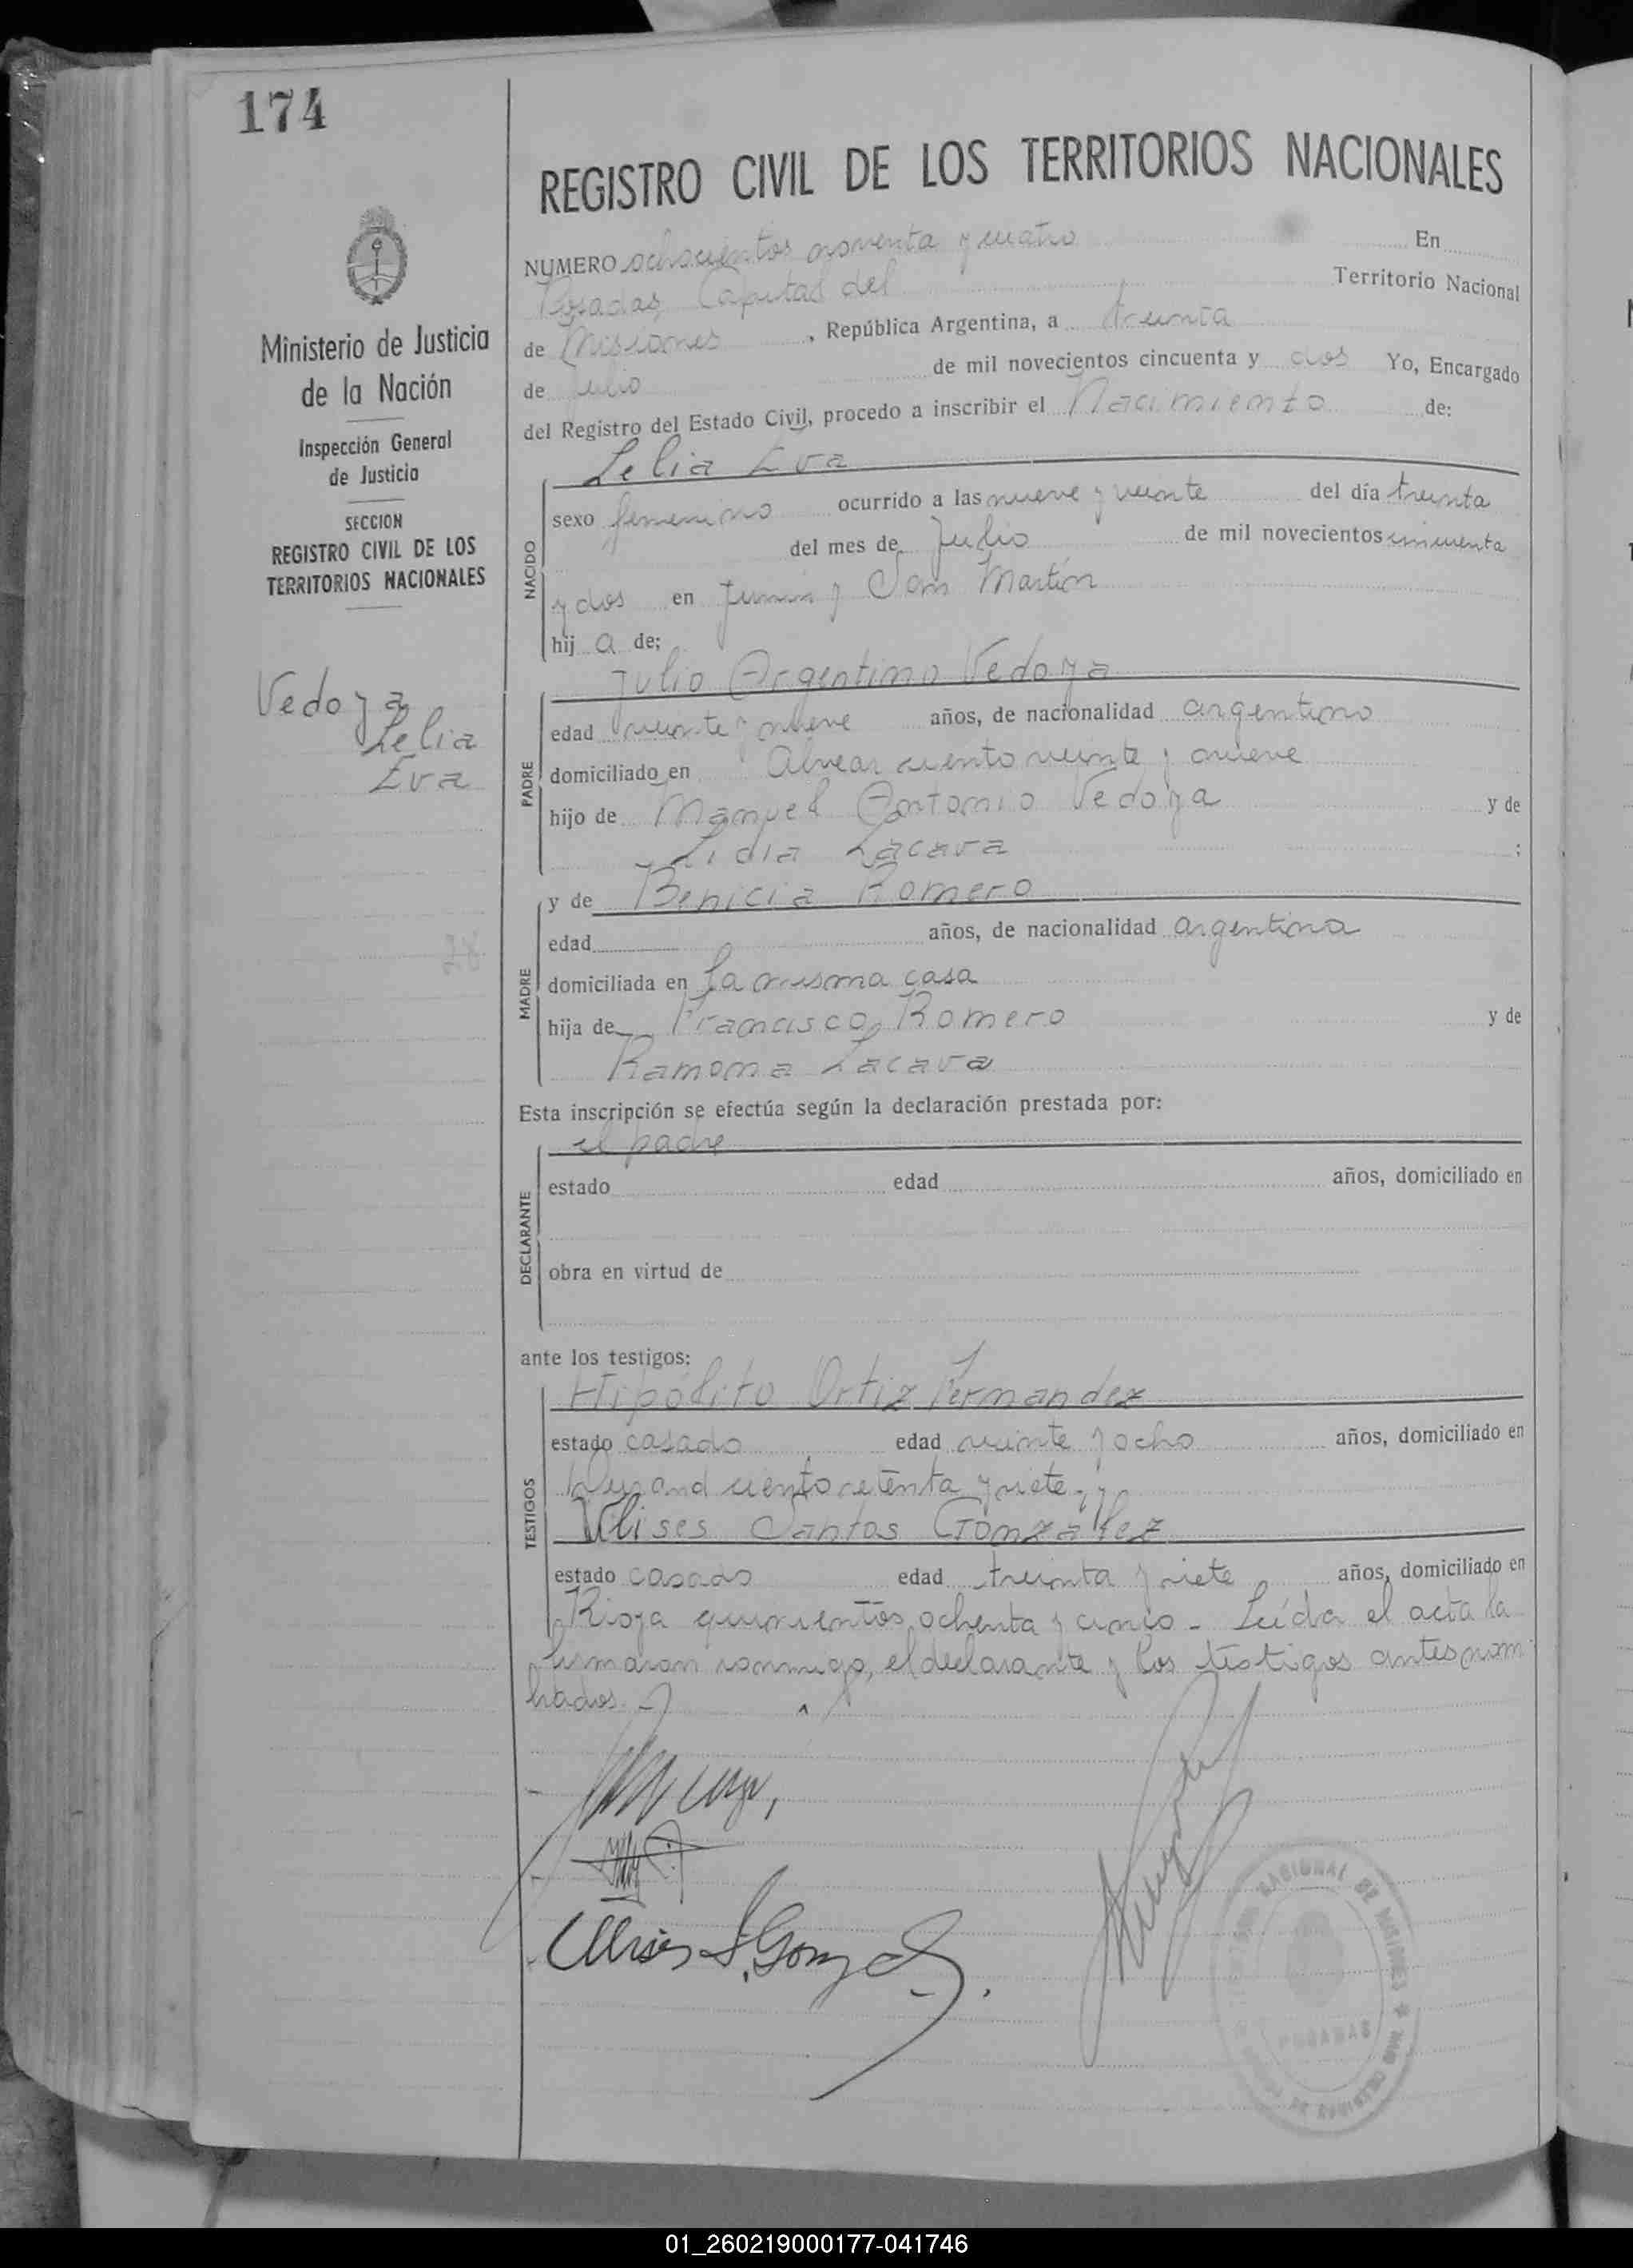 174
Ministerio de Justicia
de la Nación
Inspección General
de Justicia
SECCION
REGISTRO CIVIL DE LOS
TERRITORIOS NACIONALES
Vedoya
Lelia
Eva
28
REGISTRO CIVIL DE LOS TERRITORIOS NACIONALES
NUMERO ochocientos noventa y cuatro En
Posadas, Capital del Territorio Nacional
de Misiones, República Argentina, a treinta
de julio de mil novecientos cincuenta y dos Yo, Encargado
del Registro del Estado Civil, procedo a inscribir el Nacimiento de:
Lelia Eva
NACIDO
sexo femenino ocurrido a las nueve y veinte del día treinta
del mes de Julio de mil novecientos cincuenta
y dos en Junin y San Martín
hij a de:
Julio Argentino Vedoya
PADRE
edad veinte y nueve años, de nacionalidad argentino
domiciliado en Alvear ciento veinte y nueve
hijo de Manuel Antonio Vedoya y de
Lidia Lacava ;
MADRE
y de Benicia Romero
edad años, de nacionalidad argentina
domiciliada en la misma casa
hija de Francisco Romero y de
Ramona Lacava
Esta inscripción se efectúa según la declaración prestada por:
el padre
DECLARANTE
estado edad años, domiciliado en
obra en virtud de
ante los testigos:
Hipólito Ortiz Fernandez
TESTIGOS
estado casado edad veinte y ocho años, domiciliado en
ciento setenta y siete, y
Ulises Santos González
estado casado edad treinta y siete años, domiciliado en
Rioja quinientos ochenta y cinco - Leída el acta la
firmaron conmigo, el declarante y los testigos antes nom
brados. -
Ulises S. Gonz
NACIONAL DE MISIONES
POSADAS
DE REGISTRO CIVIL
01_260219000177-041746